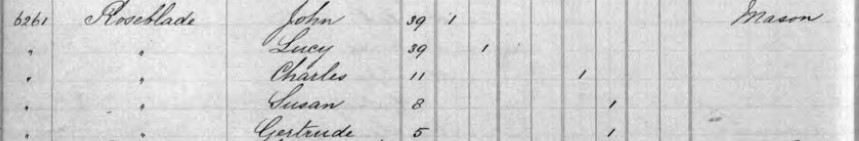 6261 Roseblade John 39 1 Mason
" " Lucy 39 1
" " Charles 11 1
" " Susan 8 1
" " Gertrude 5 1